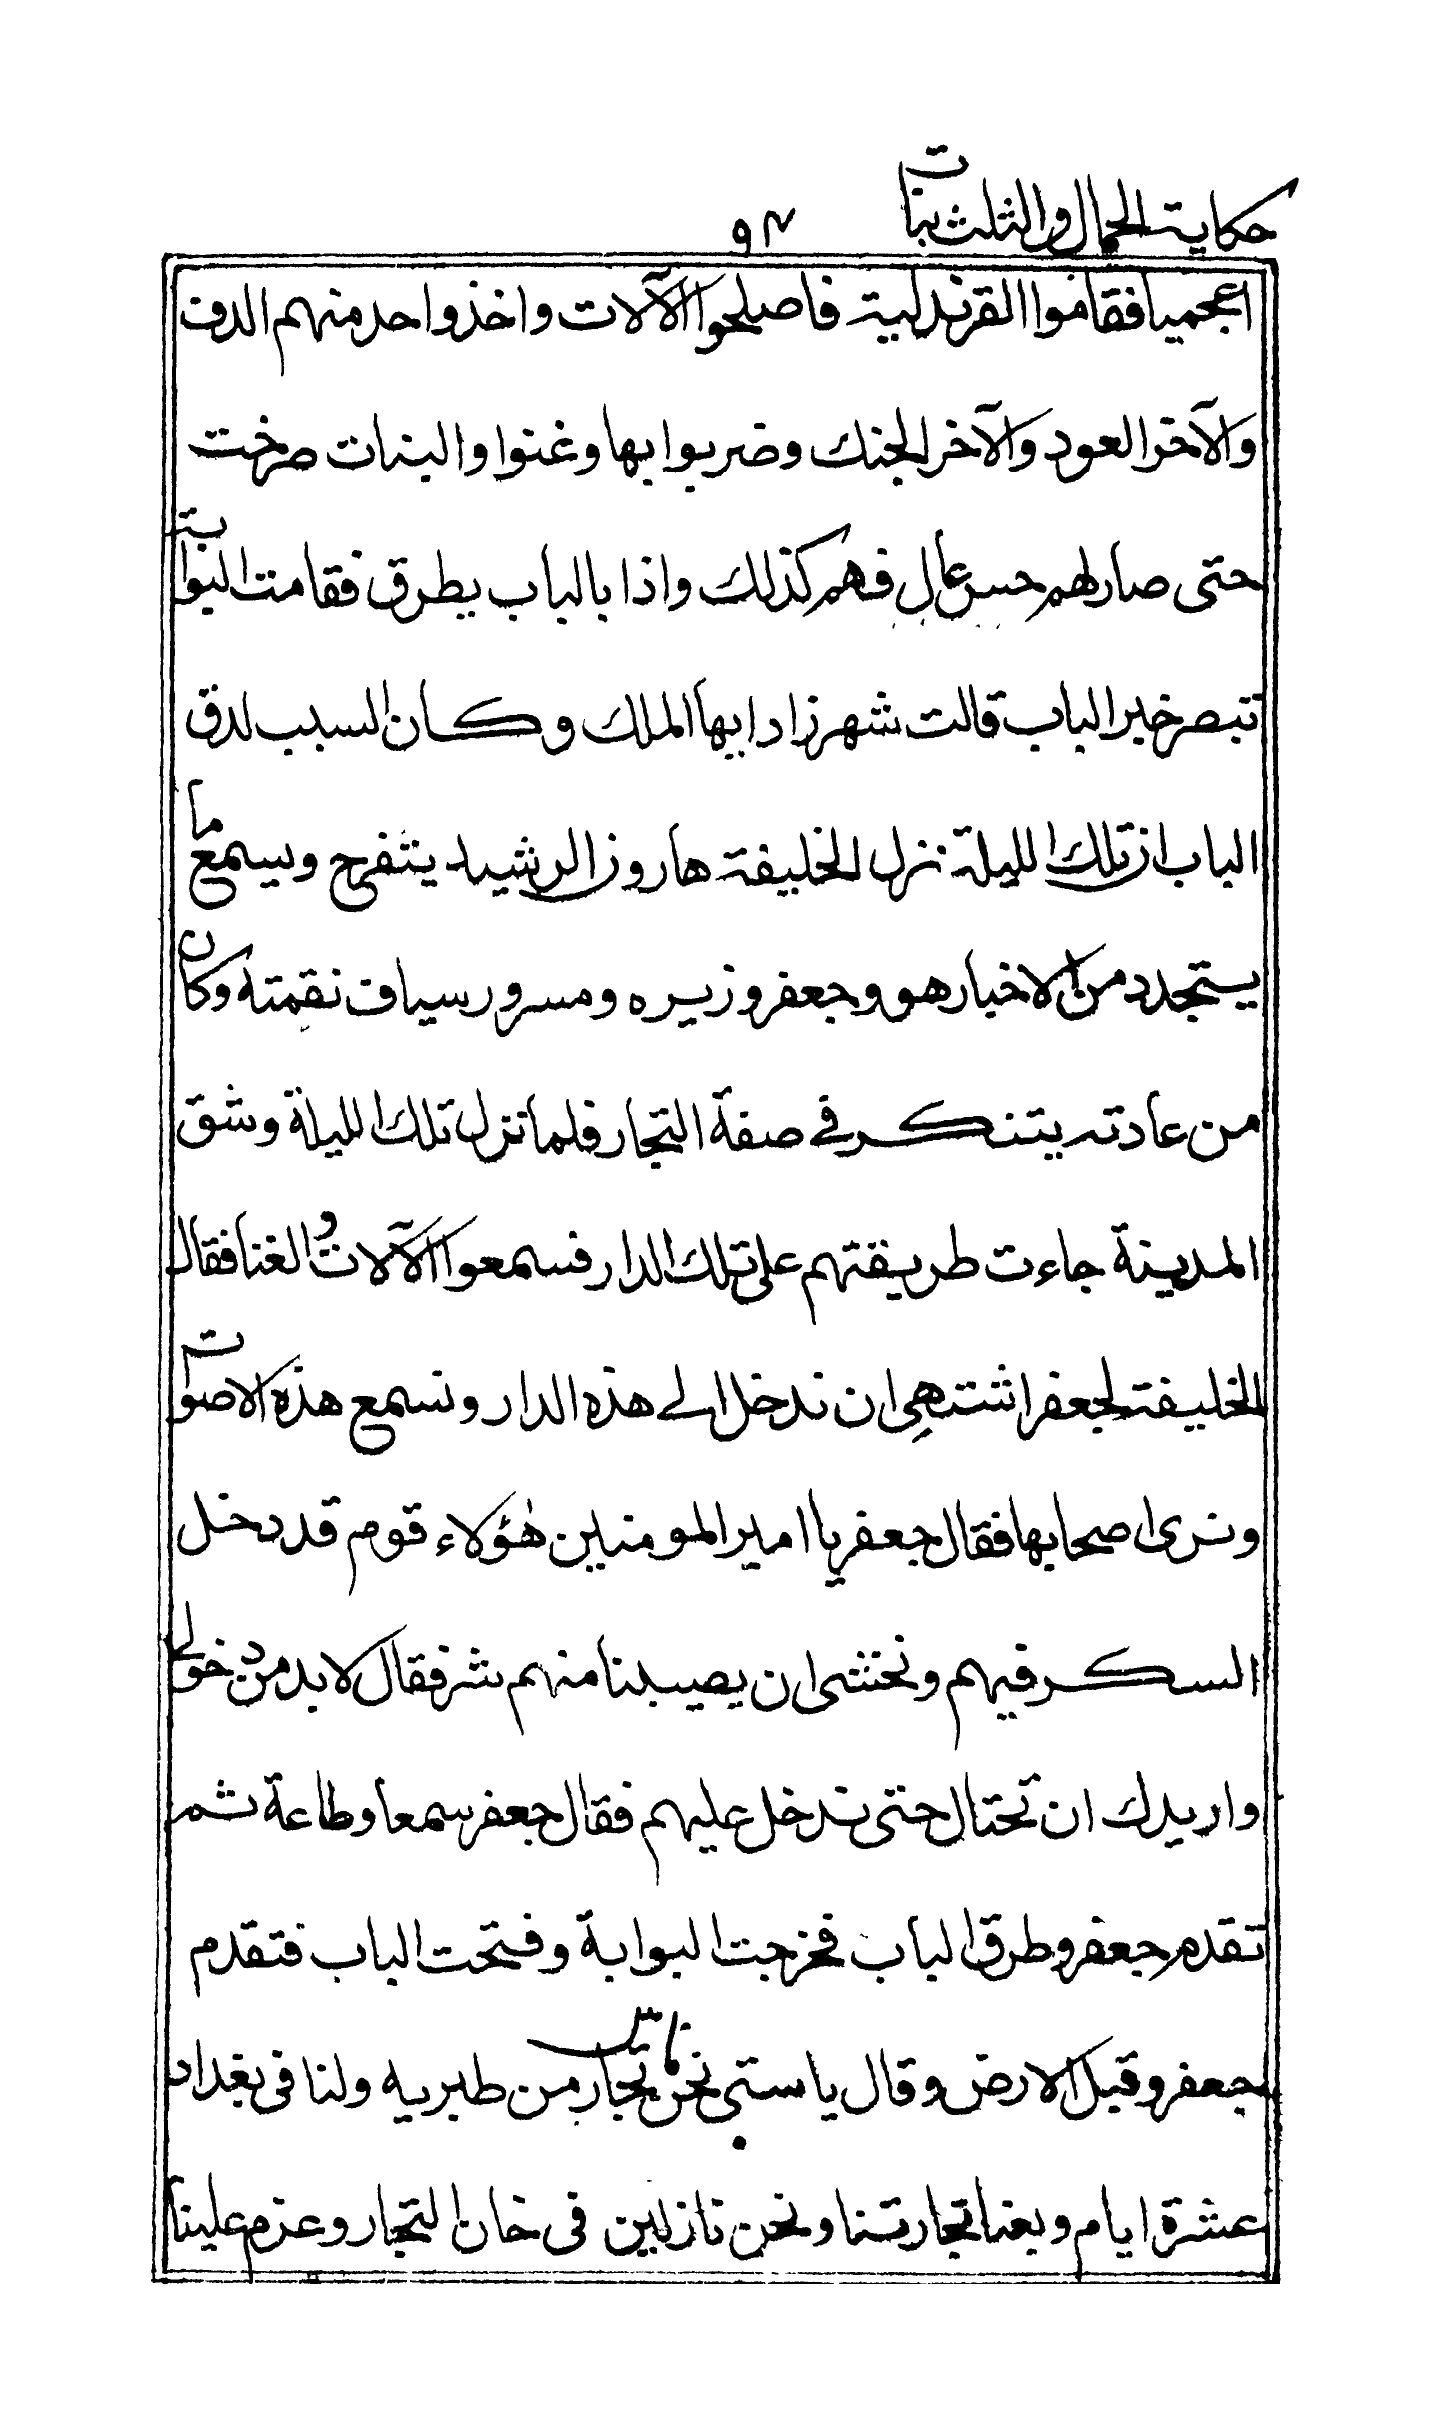 حكاية الحمال والثلث بنات
اعجميا فقاموا القرندلية فاصلحوا الآلات واخذوا حد منهم الدف
والآخر العود والآخر الجنك وضربوا بها وغنوا والبنات صرخت
حتى صار لهم حس عال فهم كذلك واذا بالباب يطرق فقامت البوابة
تبصر خبر الباب قالت شهرزاد ايها الملك وكان السبب لدق
الباب ان تلك الليلة نزل الخليفة هارون الرشيد يتفرج ويسمع ما
يستجدد من الاخبار هو وجعفر وزيره ومسرور سياف نقمته وكان
من عادته يتنكر في صفة التجار فلما نزل تلك الليلة وشق
المدينة جاءت طريقتهم على تلك الدار فسمعوا الآلات والغنا فقال
الخليفة لجعفر اشتهي ان ندخل الى هذه الدار ونسمع هذه الاصوات
ونرى اصحابها فقال جعفر يا امير المومنين هؤلاء قوم قد دخل
السكر فيهم ونخشى ان يصيبنا منهم شر فقال لا بد من دخولي
واريدك ان تحتال حتى ندخل عليهم فقال جعفر سمعا وطاعة ثم
تقدم جعفر وطرق الباب فخرجت البوابة وفتحت الباب فتقدم
جعفر وقبل الارض وقال يا ستي نحن ناس تجار من طبريه ولنا في بغداد
عشرة ايام وبعنا تجارتنا ونحن نازلين في خان التجار وعزم علينا